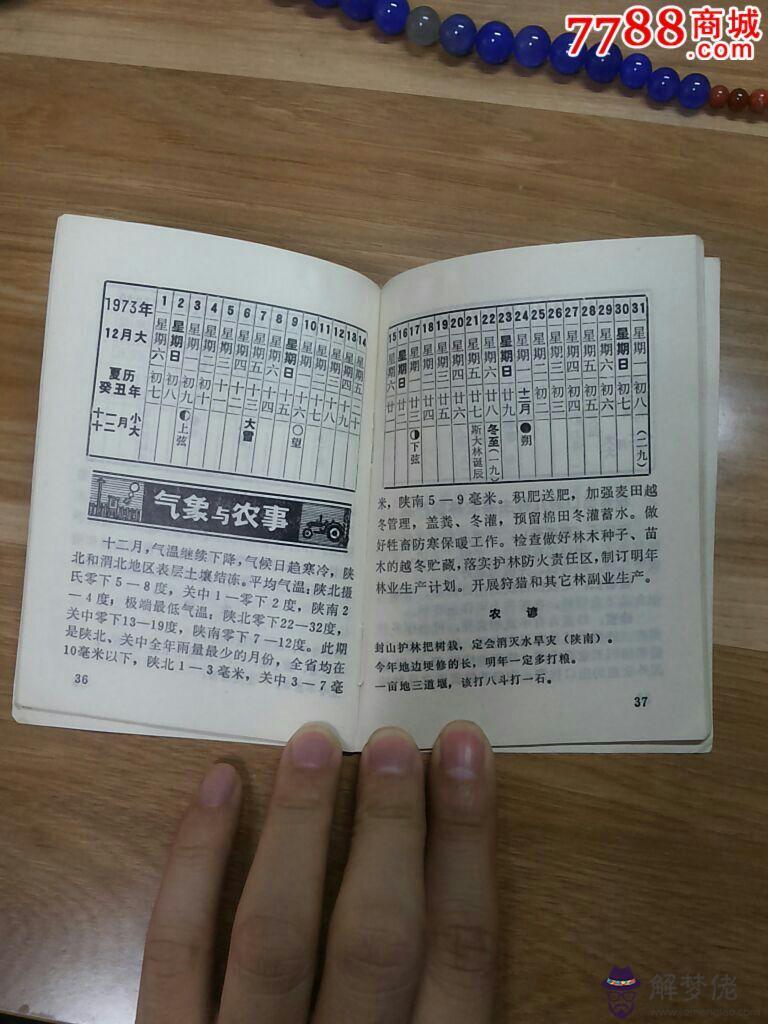 7788商城
.com
1973年
12月大
夏历
癸丑年
十一月小
十二月大
1 星期六 初七
2 星期日 初八
3 星期一 初九 上弦
4 星期二 初十
5 星期三 十一
6 星期四 十二
7 星期五 十三 大雪
8 星期六 十四
9 星期日 十五
10 星期一 十六 ○望
11 星期二 十七
12 星期三 十八
13 星期四 十九
14 星期五 二十
气象与农事
十二月，气温继续下降，气候日趋寒冷，陕
北和渭北地区表层土壤结冻。平均气温：陕北摄
氏零下5—8度，关中1—零下2度，陕南2
—4度；极端最低气温：陕北零下22—32度，
关中零下13—19度，陕南零下7—12度。此期
是陕北、关中全年雨量最少的月份，全省均在
10毫米以下，陕北1—3毫米，关中3—7毫
36
15 星期六 廿一
16 星期日 廿二
17 星期一 廿三 下弦
18 星期二 廿四
19 星期三 廿五
20 星期四 廿六
21 星期五 廿七 斯大林诞辰
22 星期六 廿八 冬至(一九)
23 星期日 廿九
24 星期一 十二月 ●朔
25 星期二 初二
26 星期三 初三
27 星期四 初四
28 星期五 初五
29 星期六 初六
30 星期日 初七
31 星期一 初八 (二九)
米，陕南5—9毫米。积肥送肥，加强麦田越
冬管理，盖粪、冬灌，预留棉田冬灌蓄水。做
好牲畜防寒保暖工作。检查做好林木种子、苗
木的越冬贮藏，落实护林防火责任区，制订明年
林业生产计划。开展狩猎和其它林副业生产。
农谚
封山护林把树栽，定会消灭水旱灾（陕南）。
今年地边埂修的长，明年一定多打粮。
一亩地三道堰，该打八斗打一石。
37
解梦佬